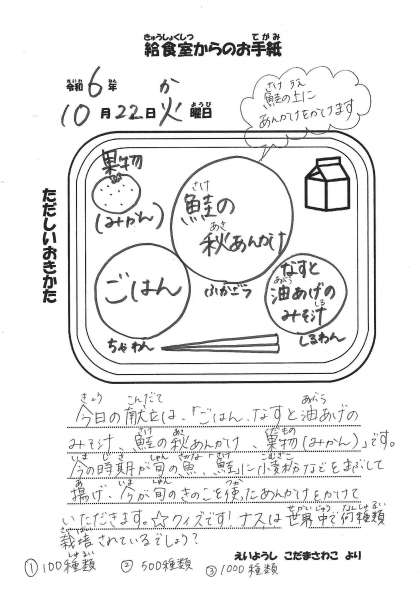 きゅうしょくしつ てがみ
給食室からのお手紙
れいわ ねん か
令和6年
ようび
10月22日火曜日
さけ うえ
鮭の上に
あんかけをかけます
果物
(みかん)
さけ
鮭の
あき
秋あんかけ
ふかざら
ごはん
ちゃわん
なすと
あぶら
油あげの
しる
みそ汁
しるわん
ただしいおきかた
きょう こんだて あぶら
今日の献立は、「ごはん、なすと油あげの
しる さけ あき くだもの
みそ汁、鮭の秋あんかけ、果物(みかん)」です。
いま じき しゅん さかな さけ こむぎこ
今の時期が旬の魚、「鮭」に小麦粉などをまぶして
あ いま しゅん つか
揚げ、今が旬のきのこを使ったあんかけをかけて
せかいじゅう なんしゅるい
いただきます。☆クイズです!ナスは世界中で何種類
さいばい
栽培されているでしょう?
しゅるい
①100種類 ②500種類 ③1000種類
えいようし こだまさわこ より